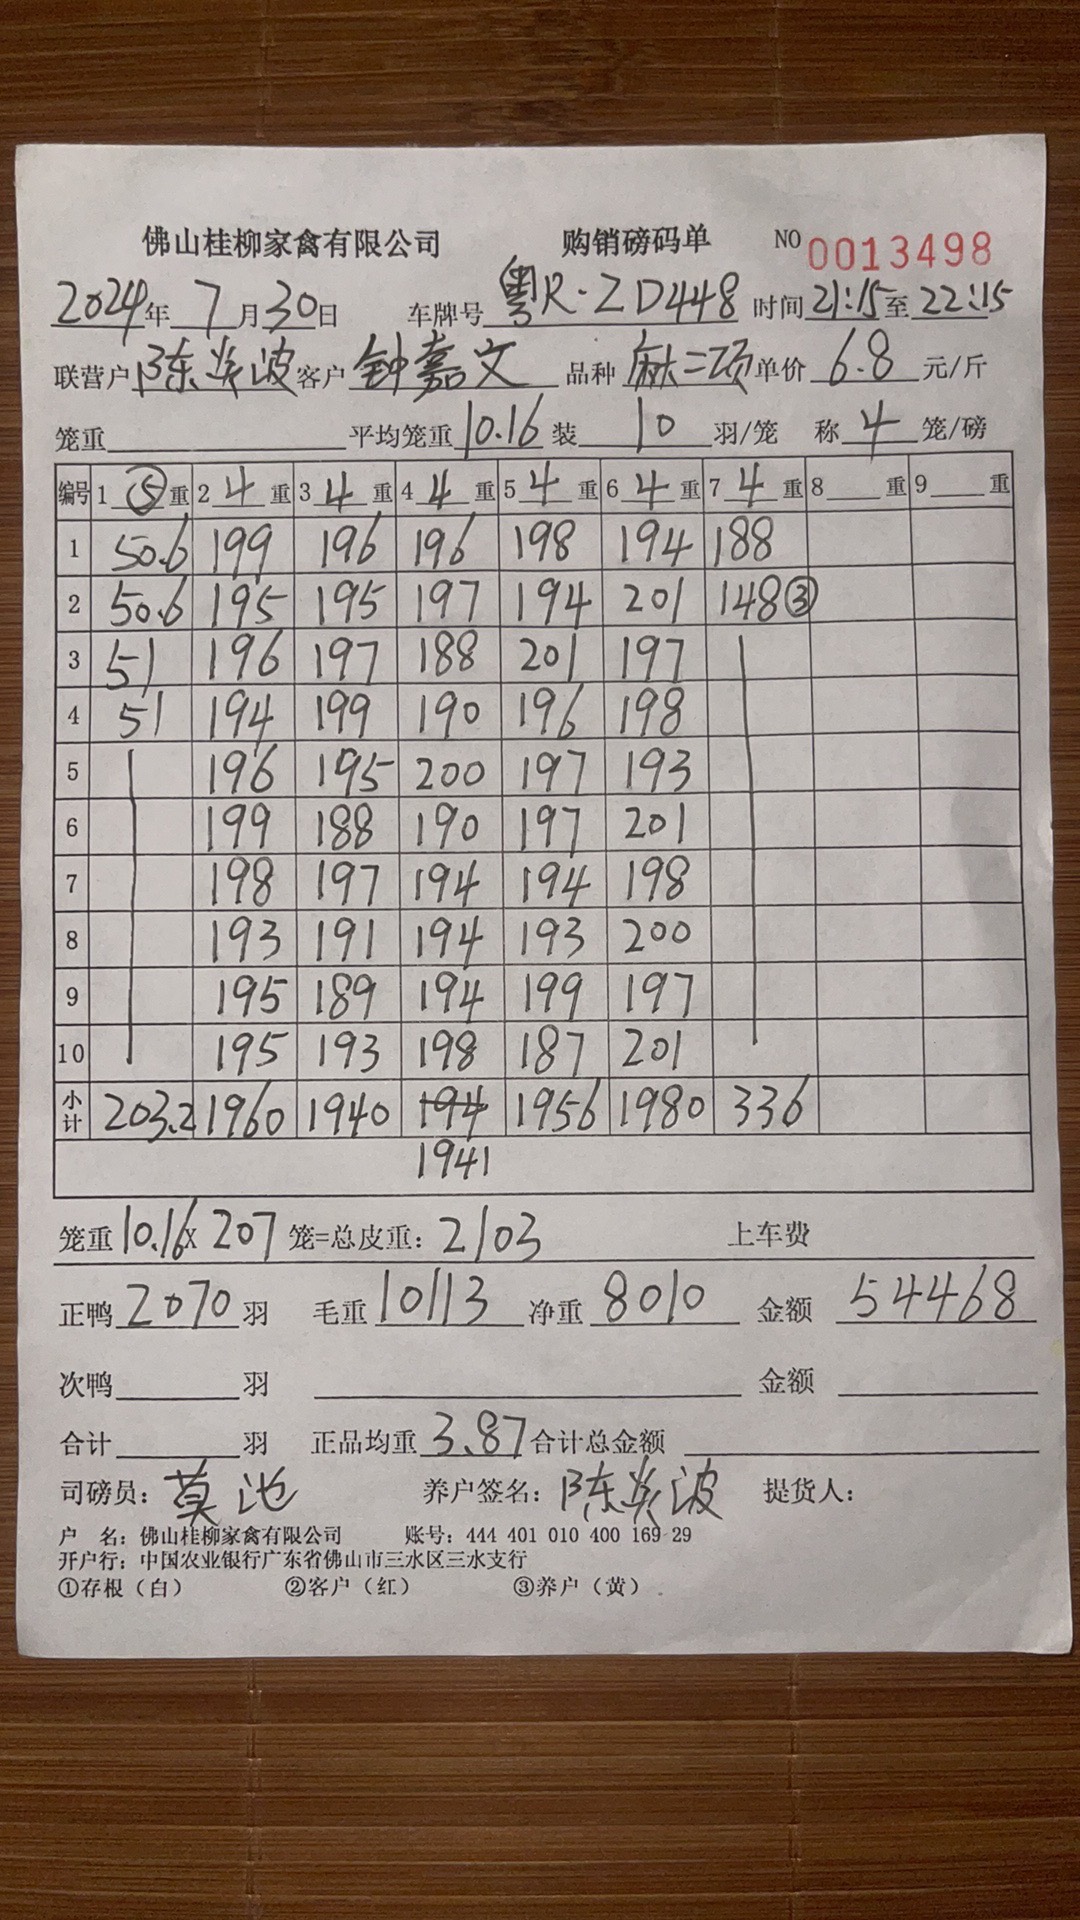 佛山桂柳家禽有限公司 购销磅码单 NO 0013498
2024年7月30日 车牌号 粤R·ZD448 时间 21:15 至 22:15
联营户 陈炎波 客户 钟嘉文 品种 麻二项 单价 6.8 元/斤
笼重 平均笼重 10.16 装 10 羽/笼 称 4 笼/磅
编号 1 ⑤ 重 2 4 重 3 4 重 4 4 重 5 4 重 6 4 重 7 4 重 8 重 9 重
1 50.6 199 196 196 198 194 188
2 50.6 195 195 197 194 201 148③
3 51 196 197 188 201 197
4 51 194 199 190 196 198
5 196 195 200 197 193
6 199 188 190 197 201
7 198 197 194 194 198
8 193 191 194 193 200
9 195 189 194 199 197
10 195 193 198 187 201
小计 203.2 1960 1940 194 1956 1980 336
1941
笼重 10.16 x 207 笼=总皮重: 2103 上车费
正鸭 2070 羽 毛重 10113 净重 8010 金额 54468
次鸭 羽 金额
合计 羽 正品均重 3.87 合计总金额
司磅员: 莫池 养户签名: 陈炎波 提货人:
户 名: 佛山桂柳家禽有限公司 账号: 444 401 010 400 169 29
开户行: 中国农业银行广东省佛山市三水区三水支行
①存根（白） ②客户（红） ③养户（黄）